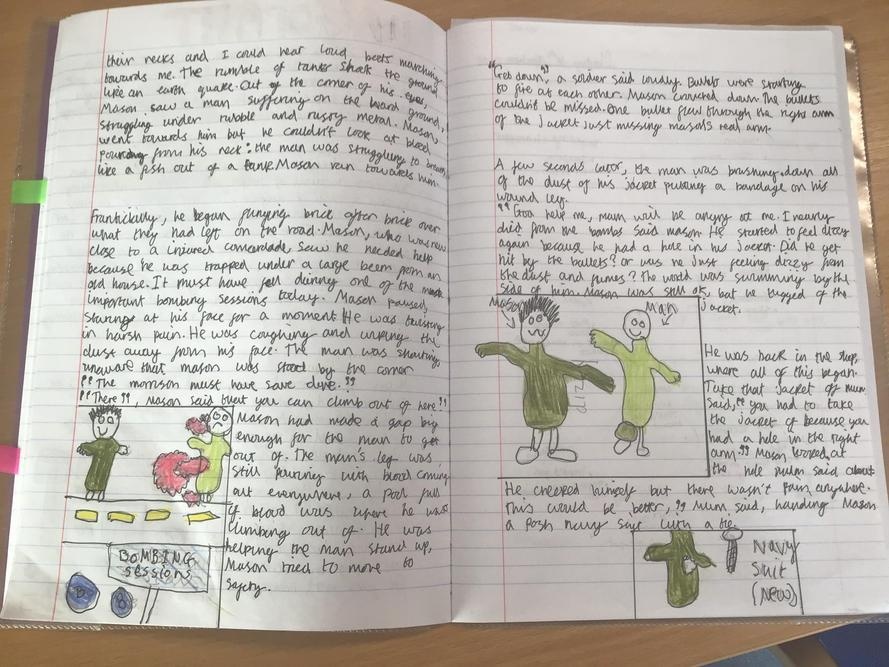 their necks and I could hear loud beets marching
towards me. The rumble of tanks shook the ground
like an earth quake. Out of the corner of his eyes,
Mason saw a man suffering on the board ground,
struggling under rubble and rusty metal. Mason
went towards him but he couldn't look at blood
pouring from his neck: the man was struggling to breath
like a fish out of a tank. Mason ran towards him.
Franticlly, he began flinging brick after brick over
what they had left on the road. Mason, who was now
close to a injured comerade, saw he needed help
because he was trapped under a large beem from an
old house. It must have fell durinng one of the most
important bombing sessions today. Mason paused,
staring at his face for a moment. He was twisting
in harsh pain. He was coughing and wiping the
dust away from his face. The man was shouting,
unaware that mason was stood by the corner
"The morrison must have save dive."
"There", Mason said that you can climb out of here!"
Mason had made a gap big
enough for the man to get
out of. The man's leg was
still pouring with blood coming
out everywhere, a pool full
of blood was where he was
climbing out of. He was
helping the man stand up,
Mason tried to move to
safety.
BOMBING
sessions
B
B
"Get down", a soldier said loudly. Bullets were starting
to fire at each other. Mason crouched down. The bullets
couldn't be missed. One bullet flew through the right arm
of the jacket just missing masons real arm.
A few seconds later, the man was brushing down all
of the dust of his jacket putting a bandage on his
wound leg.
"God help me, mum will be angry at me. I nearly
died from the bombs said mason. He started to feel dizzy
again because he had a hole in his jacket. Did he get
hit by the bullets? or was he just feeling dizzy from
the dust and fumes? The world was swimming by the
side of him. Mason was still ok, but he tugged of the
jacket.
Mason
Man
dizzy
He was back in the shop,
where all of this began.
Take that jacket of mum
said, "you had to take
the jacket of because you
had a hole in the right
arm." Mason looked at
the hole mum said about
He checked himself but there wasn't pain anywhere.
This would be better," Mum said, handing Mason
a posh navy suit with a tie.
NAVY
Suit
(NEW)